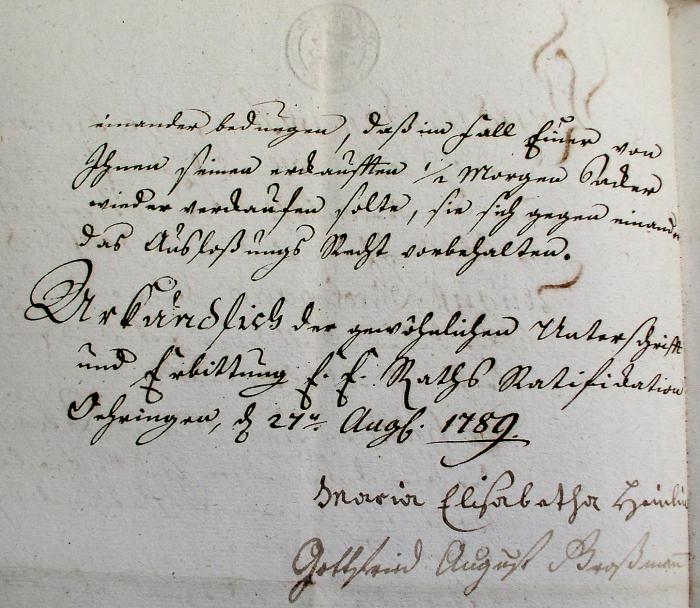 einander bedungen, daß im Fall Einer von
Ihnen seinen erkaufften 1/2 Morgen Acker
wieder verkaufen solte, sie sich gegen einander
das Auslosungs Recht vorbehalten.
Urkundlich der gewöhnlichen Unterschrifft
und Erbittung E. E. Raths Ratification
Oehringen, d. 27n Aug. 1789.
Maria Elisabetha
Gottfried August Großmann